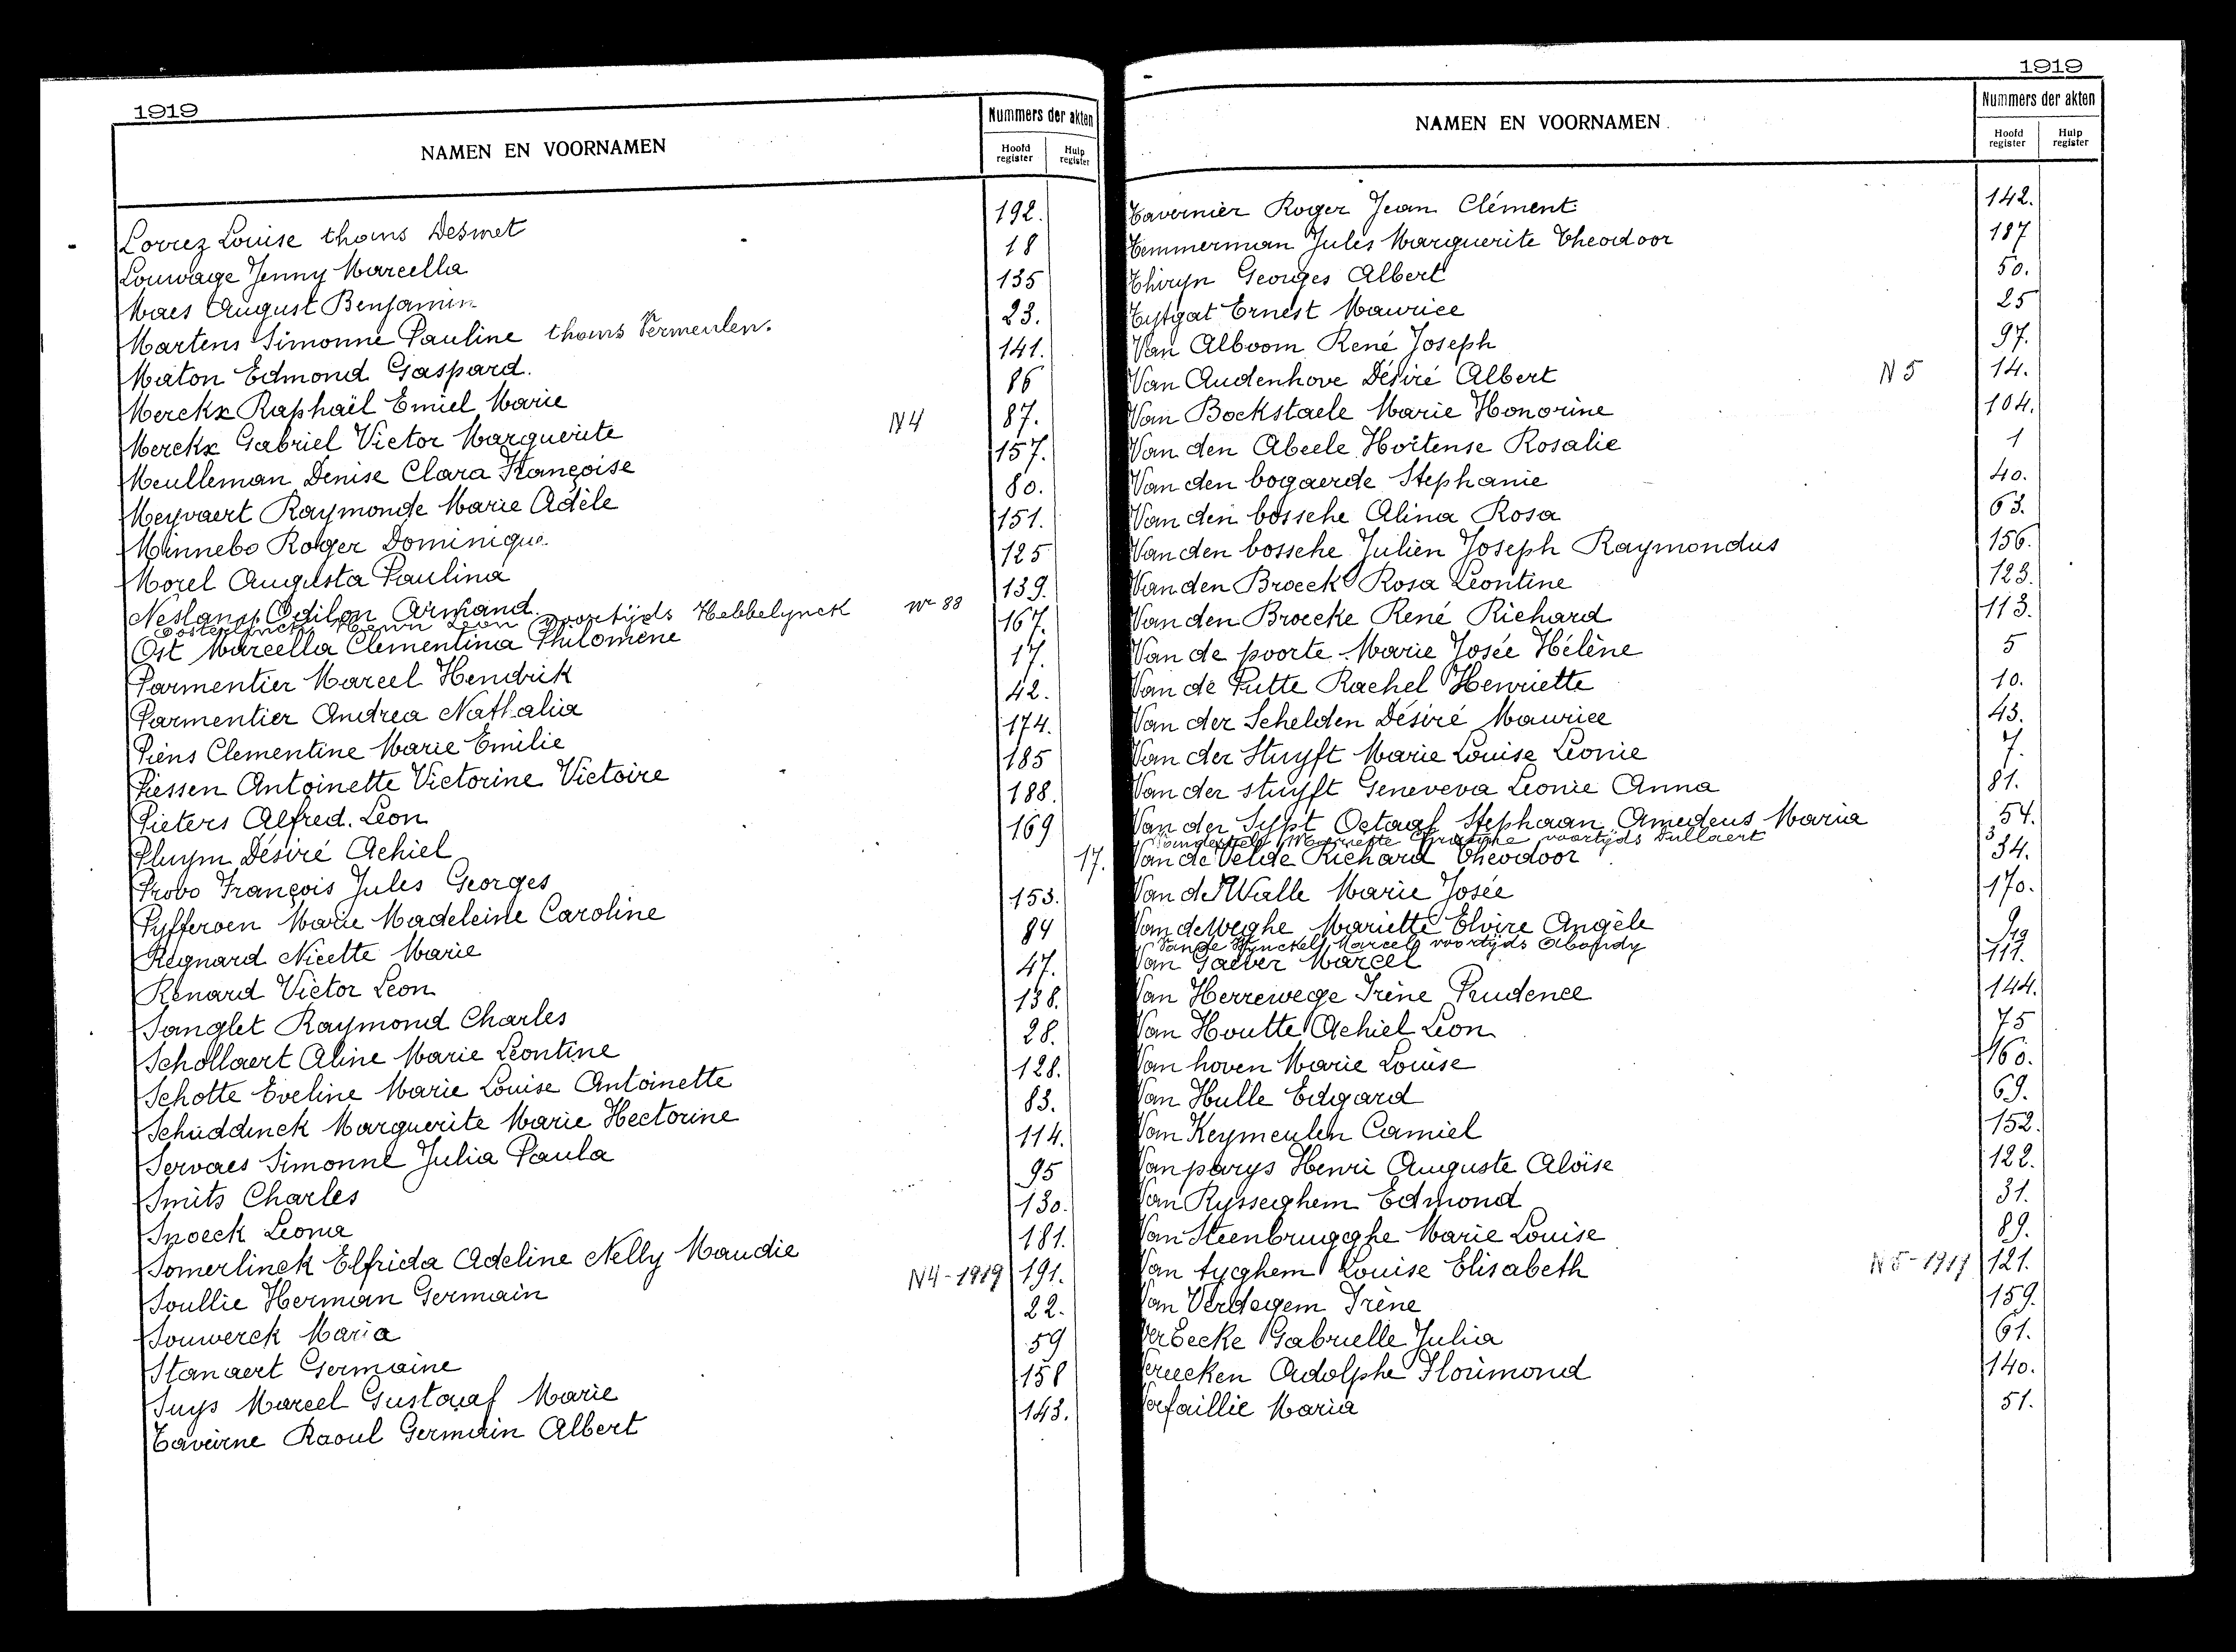 1919
NAMEN EN VOORNAMEN
Nummers der akten
Hoofd register
Hulp register
Lovrez Louise thans Desmet 192.
Louwage Jenny Marcella 18
Maes August Benjamin 135
Martens Simonne Pauline thans Vermeulen. 23.
Maton Edmond Gaspard. 141.
Merckx Raphaël Emiel Marie 86
Merckx Gabriel Victor Marguerite N4 87.
Meulleman Denise Clara Françoise 157.
Meyvaert Raymonde Marie Adèle 80.
Minnebo Roger Dominique 151.
Morel Augusta Paulina 125
Neslany Odilon Armand. 139.
Oosterlynck Henri Leon voortijds Hebbelynck nr 88
Ost Marcella Clementina Philomène 167.
Parmentier Marcel Hendrik 17.
Parmentier Andrea Nathalia 42.
Piens Clementine Marie Emilie 174.
Piessen Antoinette Victorine Victoire 185
Pieters Alfred Leon 188.
Pluym Désiré Achiel 169
Provo François Jules Georges 17.
Pyfferoen Marie Madeleine Caroline 153.
Regnard Nicette Marie 84
Renard Victor Leon 47.
Sanglet Raymond Charles 138.
Schollaert Aline Marie Leontine 28.
Schotte Eveline Marie Louise Antoinette 128.
Schuddinck Marguerite Marie Hectorine 83.
Servaes Simonne Julia Paula 114.
Smits Charles 95
Snoeck Leona 130.
Somerlinck Elfrida Adeline Nelly Maudie 181.
Soullie Herman Germain N4-1919 191.
Souwerck Maria 22.
Stanaert Germaine 59
Suys Marcel Gustaaf Marie 158
Taveirne Raoul Germain Albert 143.
1919
NAMEN EN VOORNAMEN
Nummers der akten
Hoofd register
Hulp register
Tavernier Roger Jean Clément 142.
Temmerman Jules Marguerite Theodoor 187
Thiryn Georges Albert 50.
Tytgat Ernest Maurice 25
Van Alboom René Joseph 97.
Van Audenhove Désiré Albert N5 14.
Van Bockstaele Marie Honorine 104.
Van den Abeele Hortense Rosalie 1
Van den bogaerde Stephanie 40.
Van den bossche Alina Rosa 63.
Van den bossche Julien Joseph Raymondus 156.
Van den Broeck Rosa Leontine 123.
Van den Broecke René Richard 113.
Van de poorte Marie Josée Hélène 5
Van de Putte Rachel Henriette 10.
Van der Schelden Désiré Maurice 43.
Van der Stuyft Marie Louise Leonie 7.
Van der stuyft Geneveva Leonie Anna 81.
Van der Sypt Octaaf Stephaan Amedeus Maria 54.
Mariette voortijds Dullaert 3
Van de Velde Richard Theodoor 34.
Van de Walle Marie Josée 170.
Van deWeghe Mariette Elvire Angèle 9
Marcel voortijds 19
Van Gaever Marcel 111.
Van Herrewege Irène Prudence 144.
Van Houtte Achiel Leon 75
Van hoven Marie Louise 160.
Van Hulle Edgard 69.
Van Keymeulen Camiel 152.
Van parys Henri Auguste Aloïse 122.
Van Rysseghem Edmond 31.
Van Steenbrugghe Marie Louise 89.
Van tyghem Louise Elisabeth N5-1919 121.
Van Verdegem Irène 159.
VerEecke Gabrielle Julia 61.
Vereecken Adolphe Florimond 140.
Verfaillie Maria 51.